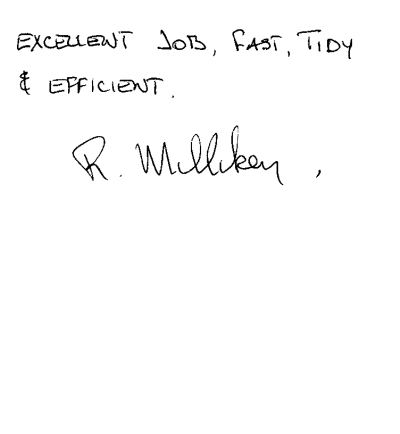 EXCELLENT JOB, FAST, TIDY
& EFFICIENT.
R. Milliken,